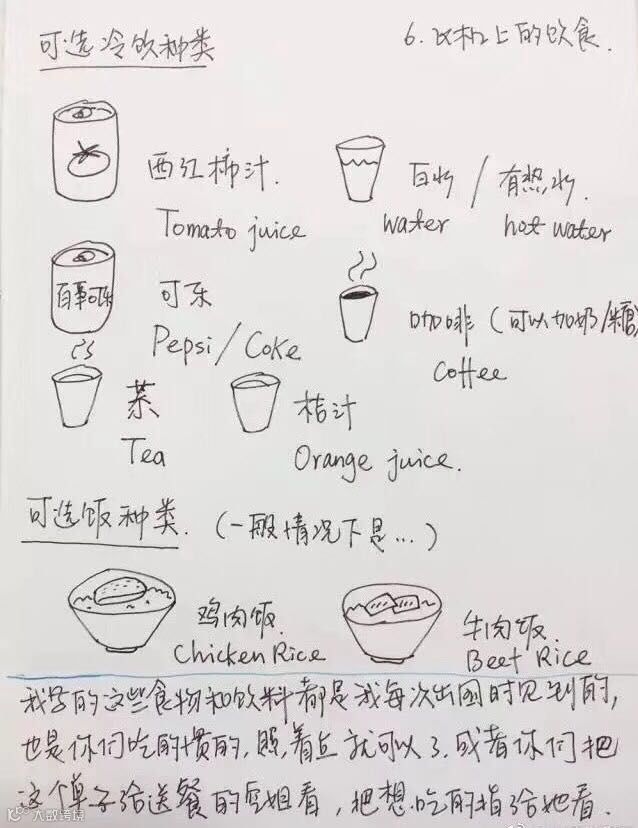 可选冷饮种类
6. 飞机上的饮食.
西红柿汁.
Tomato juice
白水 / 有热水.
water hot water
百事可乐
可乐
Pepsi/Coke
咖啡 (可以加奶/糖)
Coffee
茶
Tea
桔汁
Orange juice.
可选饭种类. (一般情况下是...)
鸡肉饭.
Chicken Rice
牛肉饭.
Beef Rice
我写的这些食物和饮料都是我每次出国时见到的,
也是你们吃的惯的, 照着点就可以了. 或者你们把
这个单子给送餐的空姐看, 把想吃的指给她看.
大数跨境